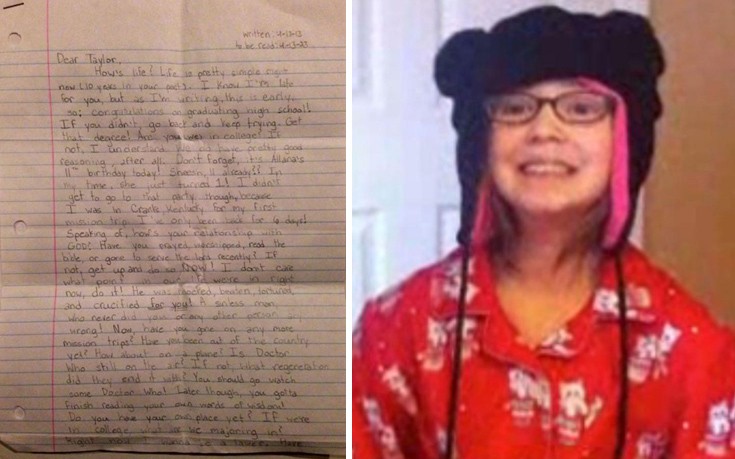 written: 4-13-13
to be read: 4-13-23
Dear Taylor,
How's life? Life is pretty simple right
now (10 years in your past). I know I'm late
for you, but as I'm writing, this is early,
so; congratulations on graduating high school!
If you didn't, go back and keep trying. Get
that degree! Are you in college? If
not, I understand. We do have pretty good
reasoning, after all. Don't forget, it's Allana's
11th birthday today! Sheesh, 11 already? In
my time, she just turned 1! I didn't
get to go to that party though, because
I was in Kentucky, for my first
mission trip. I've only been back for 6 days!
Speaking of, how's your relationship with
GOD? Have you prayed, worshipped, read the
bible, or gone to serve the lord recently? If
not, get up and do so NOW! I don't care
what point in our life we're in right
now, do it! He was mocked, beaten, tortured,
and crucified for you! A sinless man,
who never did you or any other person any
wrong! Now, have you gone on any more
mission trips? Have you been out of the country
yet? How about on a plane? Is Doctor
Who still on the air? If not, what regeneration
did they end it with? You should go watch
some Doctor Who! Later though, you gotta
finish reading your own words of wisdom!
Do you have your own place yet? If we're
in college, what are we majoring in?
Right now I wanna be a lawyer.